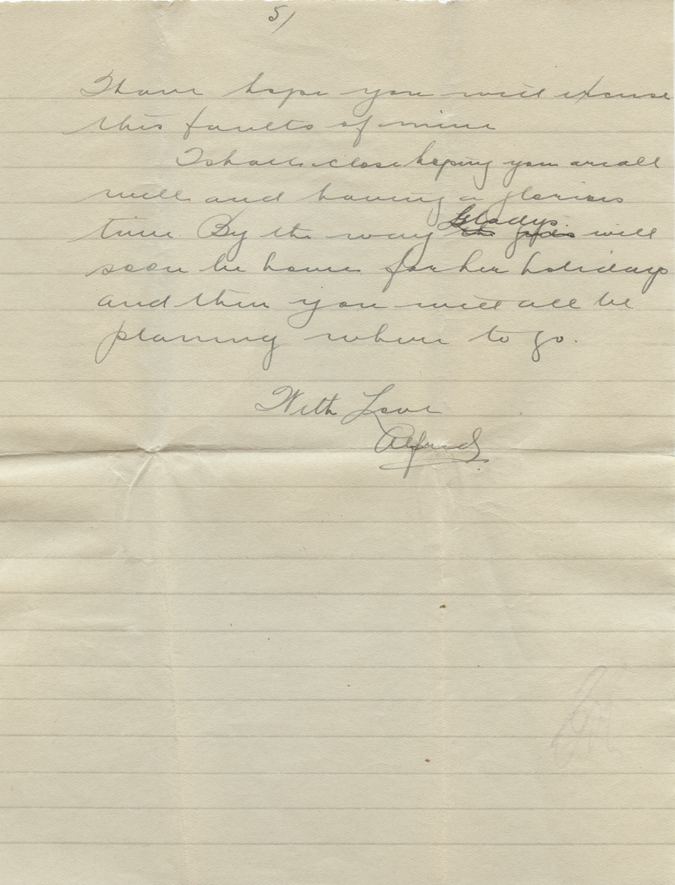 5/
I have hope you will excuse
this faults of mine
I shall close hoping you are all
well and having a glorious
time By the way Gladys will
soon be home for her holidays
and then you will all be
planning where to go.
With Love
Alfred